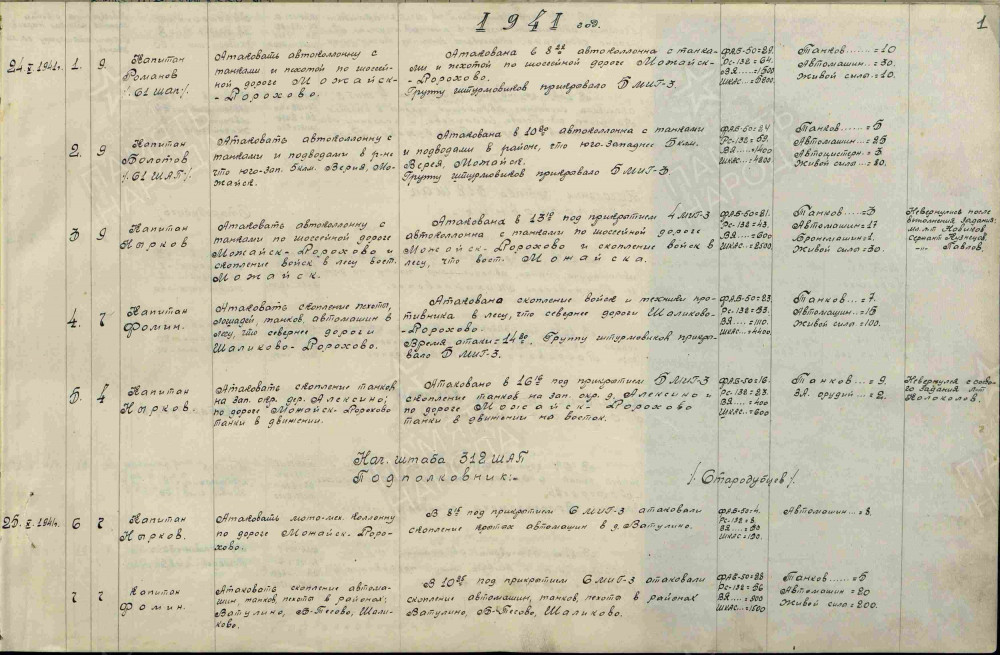 1941 год.
1
24.X.1941г. 1. 9 Капитан Романов /61 шап/.
Атаковать автоколонну с
танками и пехотой по шоссей-
ной дороге Можайск-
-Дорохово.
Атакована в автоколонна с танка-
ми и пехотой по шоссейной дороге Можайск-
-Дорохово.
Группу штурмовиков прикрывало 5 МИГ-3.
РС-132=64.
Танков......=10
Автомашин.=30.
Живой сила.=10.
2. 9 Капитан Болотов /61 ШАП/.
Атаковать автоколонну с
танками и подводами в р-не
что юго-зап. 5км. Верея, Мо-
жайск.
Атакована в автоколонна с танками
и подводами в районе, что юго-западнее 5км.
Верея, Можайск.
Группу штурмовиков прикрывало 5 МИГ-3.
ФАБ-50=24
РС-132=59.
ВЯ.....=1400
ШКАС...=4800.
Танков.......=5
Автомашин=25
Автоцистерн.=3
Живой сила=80.
3 9 Капитан Нырков
Атаковать автоколонну с
танками по шоссейной дороге
Можайск-Дорохово
скопление войск в лесу вост.
Можайск.
Атакована в под прикрытием 4 МИГ-3
автоколонна с танками по шоссейной дороге
Можайск-Дорохово и скопление войск в
лесу, что вост. Можайска.
РС-132=43.
ВЯ.....=600
ШКАС=2500.
Танков....=3
Автомашин=17
Бронемашин=1.
Живой сила=30.
Невернулись после
выполнения задания:
мл.лт Новиков
Сержант Кузнецов
-"- Павлов.
4. 7 Капитан Фомин.
Атаковать скопление пехоты,
лошадей, танков, автомашин в
лесу, что севернее дороги
Шаликово-Дорохово.
Атакована скопление войск и техники про-
тивника в лесу, что севернее дороги Шаликово-
-Дорохово.
Время атаки= Группу штурмовиков прикры-
вало 5 МИГ-3.
ФАБ-50=23.
РС-132=53.
ШКАС=4400.
Танков...=7.
Автомашин..=15
Живой сила=100.
5. 4 Капитан Нырков.
Атаковать скопление танков
на зап. окр. дер. Алексино;
по дороге Можайск-Дорохово
танки в движении.
Атаковано в под прикрытием 5 МИГ-3
скопление танков на зап. окр. д. Алексино и
по дороге Можайск-Дорохово
танки в движении на восток.
ФАБ-50=16.
РС-132=23.
ВЯ....=400
ШКАС=600
Танков.....=9.
ЗА. орудий..=2.
Невернулся с боево-
го задания лт
Колоколов.
Нач. штаба 312 ШАП
Подполковник:- /Стародубцев/.
25.X.1941г. 6 7 Капитан Нырков.
Атаковать мото-мех. колонну
по дороге Можайск-Доро-
хово.
В под прикрытием 6 МИГ-3 атаковали
скопление автомашин в д. Ватулино.
ФАБ-50=4.
РС-132=8.
Автомашин..=8.
7 7 Капитан Фомин.
Атаковать скопление автома-
шин, танков, пехота в районах;
Ватулино, Шали-
ково.
В под прикрытием 6 МИГ-3 атаковали
скопление автомашин, танков, пехота в районах
Ватулино, Шаликово.
ШКАС...=1500
Танков.....=5
Автомашин=20
Живой сила=200.